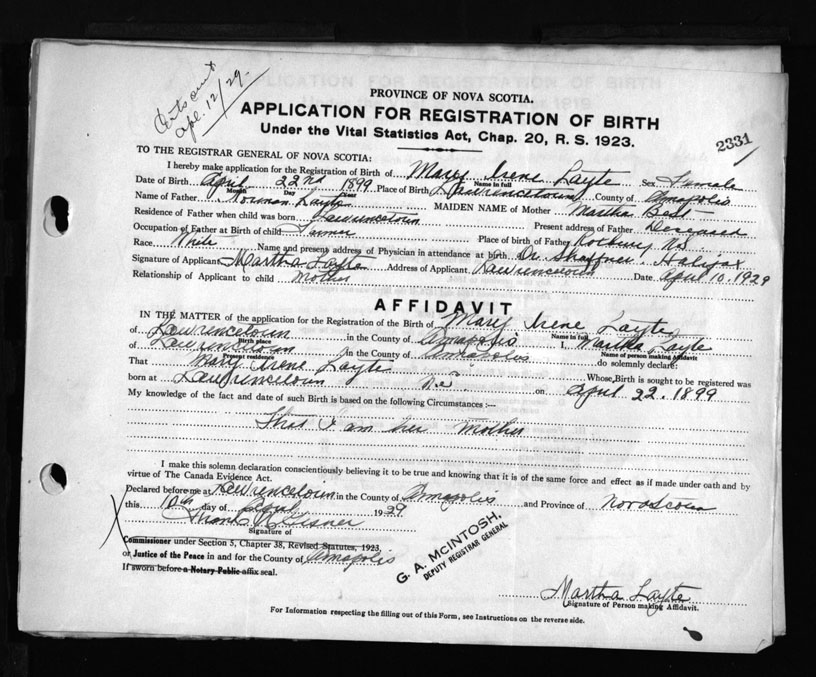 Apl. 12/29
PROVINCE OF NOVA SCOTIA.
APPLICATION FOR REGISTRATION OF BIRTH
Under the Vital Statistics Act, Chap. 20, R. S. 1923.
2331
TO THE REGISTRAR GENERAL OF NOVA SCOTIA:
I hereby make application for the Registration of Birth of Mary Irene Layte Sex Female
Name in full
Date of Birth April 22nd 1899 Place of Birth Lawrencetown County of Annapolis
Month Day Year
Name of Father Norman Layte MAIDEN NAME of Mother Martha Best
Residence of Father when child was born Lawrencetown Present address of Father Deceased
Occupation of Father at Birth of Child Farmer Place of birth of Father Roxbury N.S.
Race White Name and present address of Physician in attendance at birth Dr Shaffner Halifax
Signature of Applicant Martha Layte Address of Applicant Lawrencetown Date April 10. 1929
Relationship of Applicant to child Mother
AFFIDAVIT
IN THE MATTER of the application for the Registration of the Birth of Mary Irene Layte
Name in full
of Lawrencetown in the County of Annapolis I, Martha Layte
Birth place Name of person making Affidavit
of Lawrencetown in the County of Annapolis do solemnly declare:
Present residence
That Mary Irene Layte Whose Birth is sought to be registered was
born at Lawrencetown N.S. on April 22. 1899
My knowledge of the fact and date of such Birth is based on the following Circumstances :—
That I am her Mother
I make this solemn declaration conscientiously believing it to be true and knowing that it is of the same force and effect as if made under oath and by
virtue of The Canada Evidence Act.
Declared before me at Lawrencetown in the County of Annapolis and Province of Nova Scotia
this 10th day of April 1929
Signature of
Commissioner under Section 5, Chapter 38, Revised Statutes, 1923,
or Justice of the Peace in and for the County of Annapolis
If sworn before a Notary Public affix seal.
G. A. McINTOSH.
DEPUTY REGISTRAR GENERAL
Martha Layte
(Signature of Person making Affidavit.
For Information respecting the filling out of this Form, see Instructions on the reverse side.